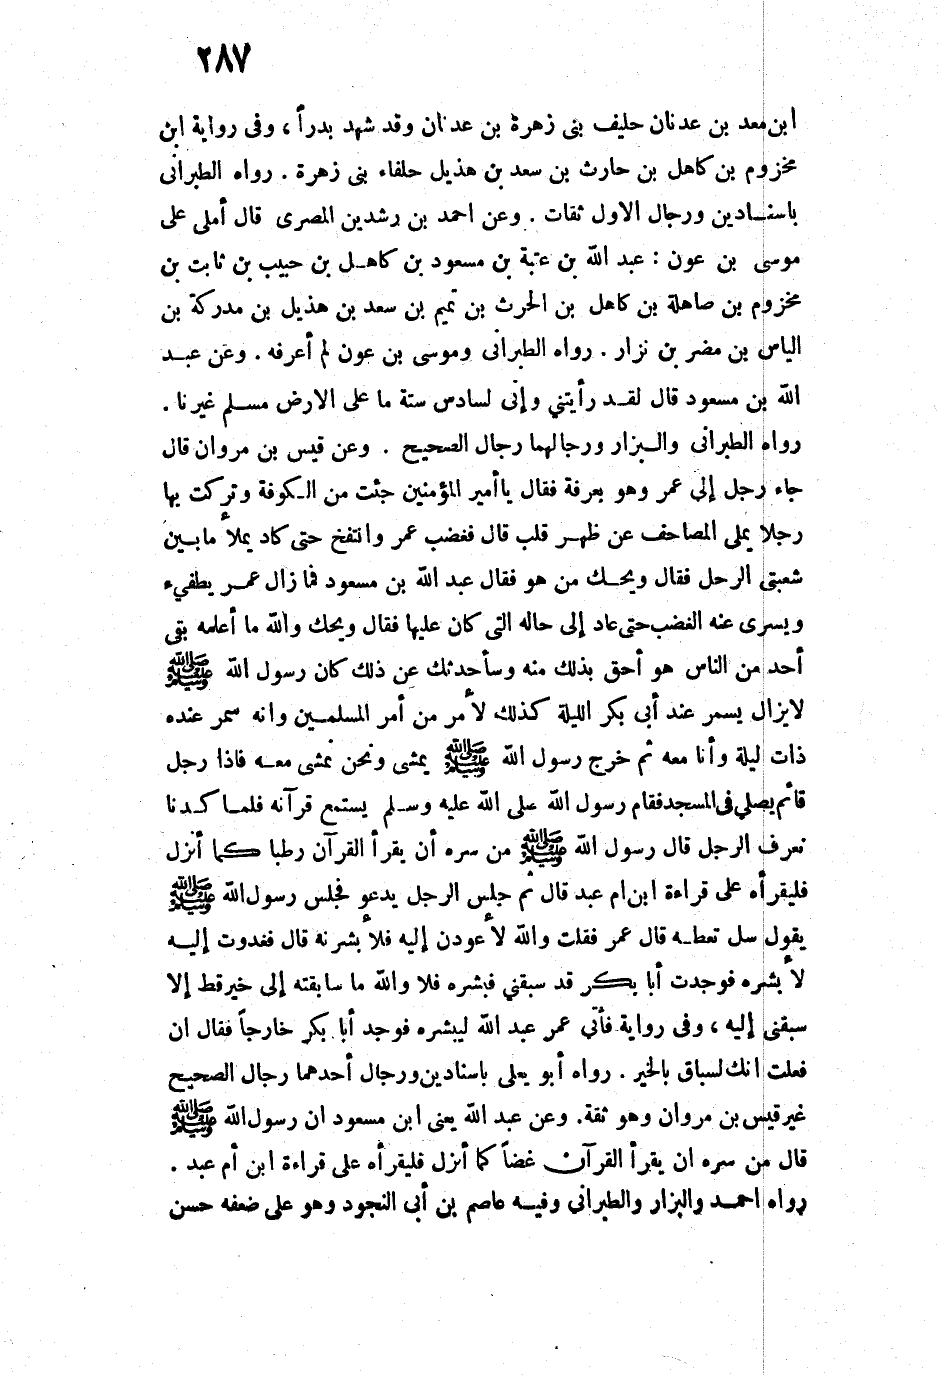 ٢٨٧
ابن معد بن عدنان حليف بنى زهرة بن عدنان وقد شهد بدراً ، وفى رواية ابن
مخزوم بن كاهل بن حارث بن سعد بن هذيل حلفاء بنى زهرة . رواه الطبرانى
باسنادين ورجال الاول ثقات . وعن احمد بن رشدين المصرى قال أملى على
موسى بن عون : عبد الله بن عتبة بن مسعود بن كاهل بن حبيب بن ثابت بن
مخزوم بن صاهلة بن كاهل بن الحرث بن تميم بن سعد بن هذيل بن مدركة بن
الياس بن مضر بن نزار . رواه الطبرانى وموسى بن عون لم أعرفه . وعن عبد
الله بن مسعود قال لقد رأيتني وإنى لسادس ستة ما على الارض مسلم غيرنا .
رواه الطبرانى والبزار ورجالهما رجال الصحيح . وعن قيس بن مروان قال
جاء رجل إلى عمر وهو بعرفة فقال ياأمير المؤمنين جئت من الكوفة وتركت بها
رجلا يملى المصاحف عن ظهر قلب قال فغضب عمر وانتفخ حتى كاد يملأ مابين
شعبتى الرحل فقال ويحك من هو فقال عبد الله بن مسعود فما زال عمر يطفيء
ويسرى عنه الغضب حتى عاد إلى حاله التى كان عليها فقال ويحك والله ما أعلمه بقى
أحد من الناس هو أحق بذلك منه وسأحدثك عن ذلك كان رسول الله ﷺ
لايزال يسمر عند أبى بكر الليلة كذلك لأمر من أمر المسلمين وانه سمر عنده
ذات ليلة وأنا معه ثم خرج رسول الله ﷺ يمشى ونحن نمشى معه فاذا رجل
قائم يصلي فى المسجد فقام رسول الله صلى الله عليه وسلم يستمع قرآنه فلما كدنا
نعرف الرجل قال رسول الله ﷺ من سره أن يقرأ القرآن رطبا كما أنزل
فليقرأه على قراءة ابن ام عبد قال ثم جلس الرجل يدعو فجلس رسول الله ﷺ
يقول سل تعطه قال عمر فقلت والله لأعودن إليه فلأبشرنه قال فغدوت إليه
لأبشره فوجدت أبا بكر قد سبقني فبشره فلا والله ما سابقته إلى خير قط إلا
سبقنى إليه ، وفى رواية فأتي عمر عبد الله ليبشره فوجد أبا بكر خارجاً فقال ان
فعلت انك لسباق بالخير . رواه أبو يعلى باسنادين ورجال أحدهما رجال الصحيح
غير قيس بن مروان وهو ثقة . وعن عبد الله يعنى ابن مسعود ان رسول الله ﷺ
قال من سره ان يقرأ القرآن غضاً كما أنزل فليقرأه على قراءة ابن أم عبد .
رواه احمد والبزار والطبراني وفيه عاصم بن أبى النجود وهو على ضعفه حسن